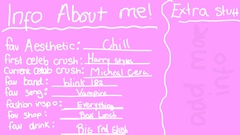 Info About me!
fav Aesthetic: Chill
first celeb crush: Harry Styles
Current Celeb crush: Micheal Cera
fav band: blink 182
fav song: Vampire
fashion inspo: Everything
fav shop:
fav drink: Big Red Slush
Extra stuff
info